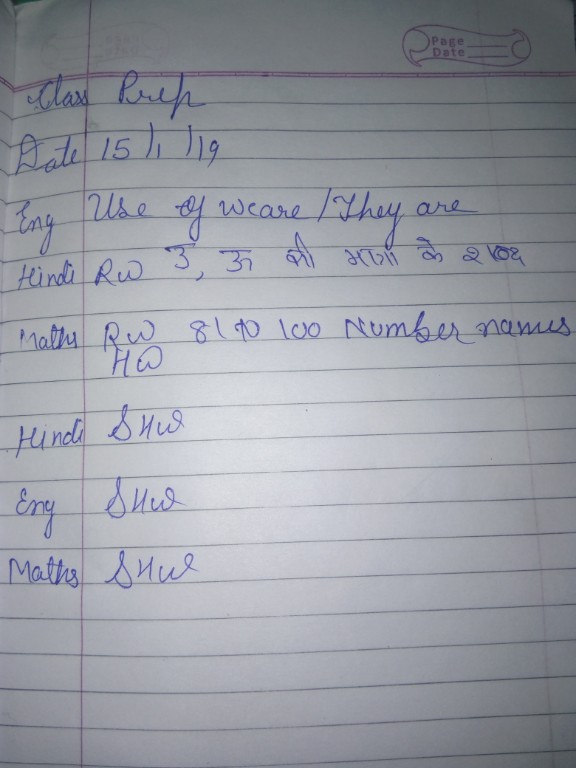 Page
Date
Class Prep
Date 15/1/19
Eng Use of weare / They are
Hindi RW उ, ऊ की मात्रा के शब्द
Maths RW 81 to 100 Number names
HW
Hindi SHW
Eng SHW
Maths SHW